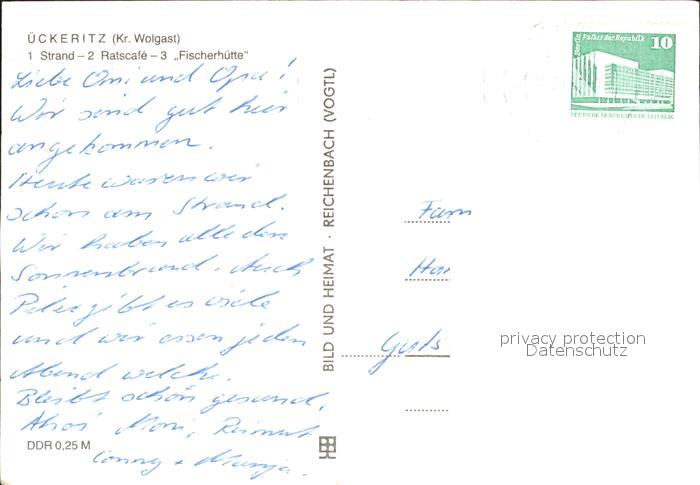 ÜCKERITZ (Kr. Wolgast)
1 Strand – 2 Ratscafé – 3 „Fischerhütte"
Liebe Omi und Opa!
Wir sind gut hier
angekommen.
Heute waren wir
schon am Strand.
Wir haben alle den
Sonnenbrand. Auch
Pilze gibt es viele
und wir essen jeden
Abend welche.
Bleibt schön gesund.
Ahoi Moni, Reinert
Conny + Manja.
DDR 0,25 M
BILD UND HEIMAT · REICHENBACH (VOGTL)
Berlin Palast der Republik
10
DEUTSCHE DEMOKRATISCHE REPUBLIK
Fam
Guts
privacy protection
Datenschutz